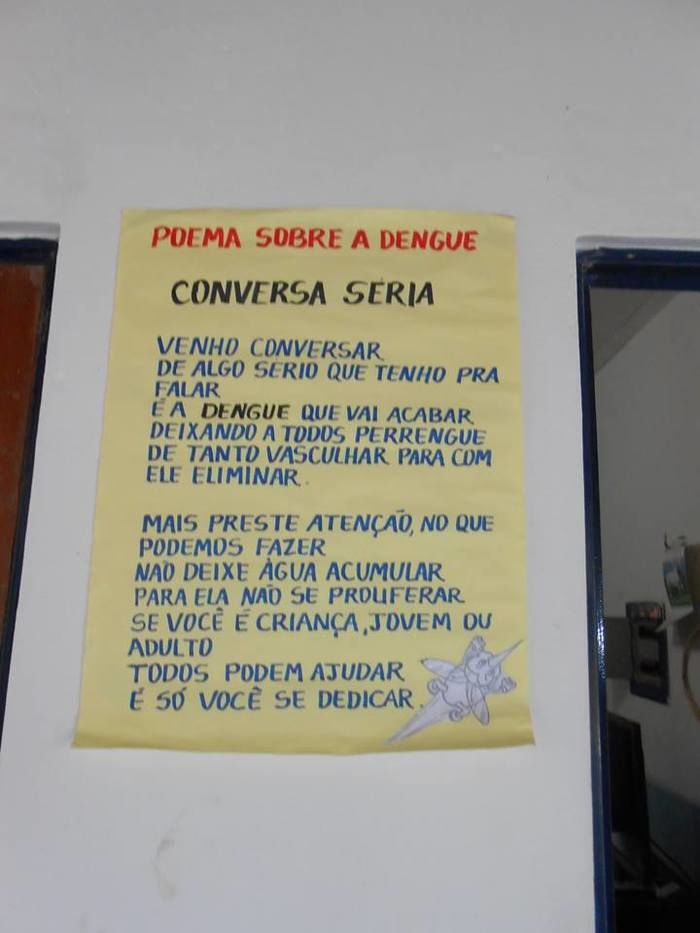 POEMA SOBRE A DENGUE
CONVERSA SERIA
VENHO CONVERSAR
DE ALGO SERIO QUE TENHO PRA
FALAR
É A DENGUE QUE VAI ACABAR
DEIXANDO A TODOS PERRENGUE
DE TANTO VASCULHAR PARA COM
ELE ELIMINAR.
MAIS PRESTE ATENÇÃO, NO QUE
PODEMOS FAZER
NÃO DEIXE ÀGUA ACUMULAR
PARA ELA NÃO SE PROLIFERAR
SE VOCÊ É CRIANÇA, JOVEM OU
ADULTO
TODOS PODEM AJUDAR
É SÓ VOCÊ SE DEDICAR.